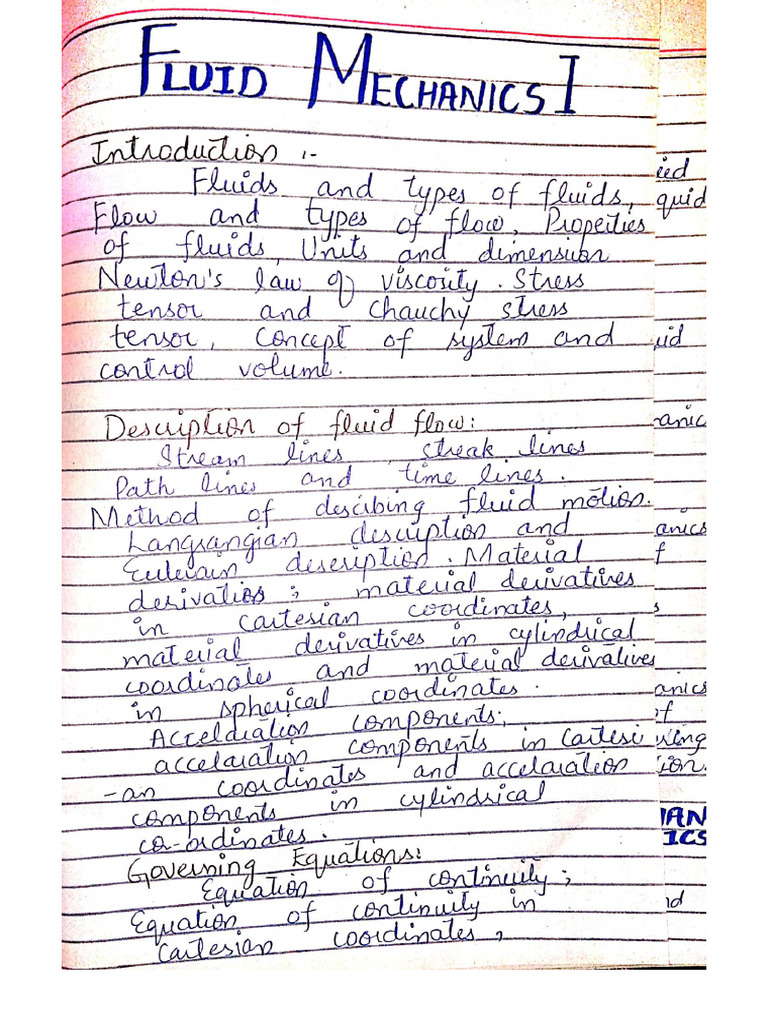 FLUID MECHANICS I
Introduction :-
Fluids and types of fluids,
Flow and types of flow, Properties
of fluids, Units and dimension
Newton's law of viscosity. Stress
tensor and Chauchy stress
tensor, Concept of system and
control volume.
Description of fluid flow:
Stream lines, streak lines
Path lines and time lines.
Method of descibing fluid motion.
Langrangian description and
Eulerain description. Material
derivaties; material derivatives
in cartesian coordinates,
material derivatives in cylindrical
coordinates and material derivatives
in spherical coordinates.
Acceldration components;
accelaration components in Cartesi
-an coordinates and accelaration
components in cylindrical
co-ordinates.
Governing Equations:
Equation of continuity;
Equation of continuity in
Cartesian coordinates,
quid
uid
anics
f
s
anics
of
ion.
ICS